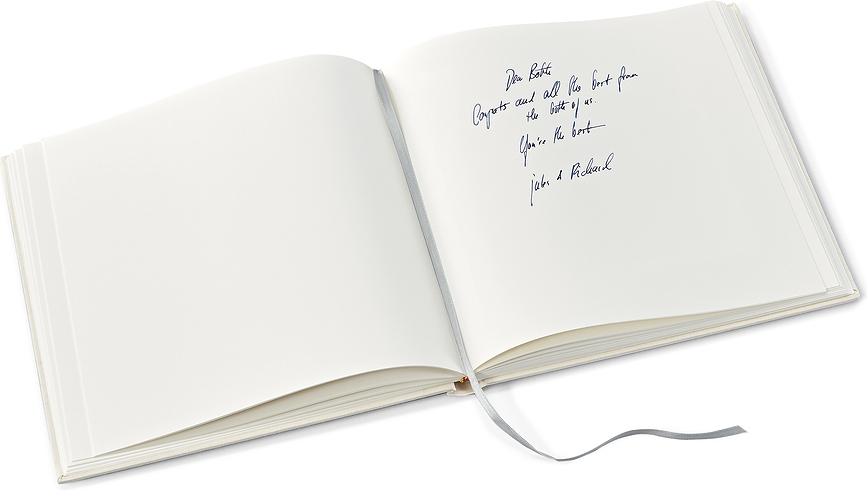 Dear Both
Congrats and all the best from
the both of us.
You're the best
Jules & Richard